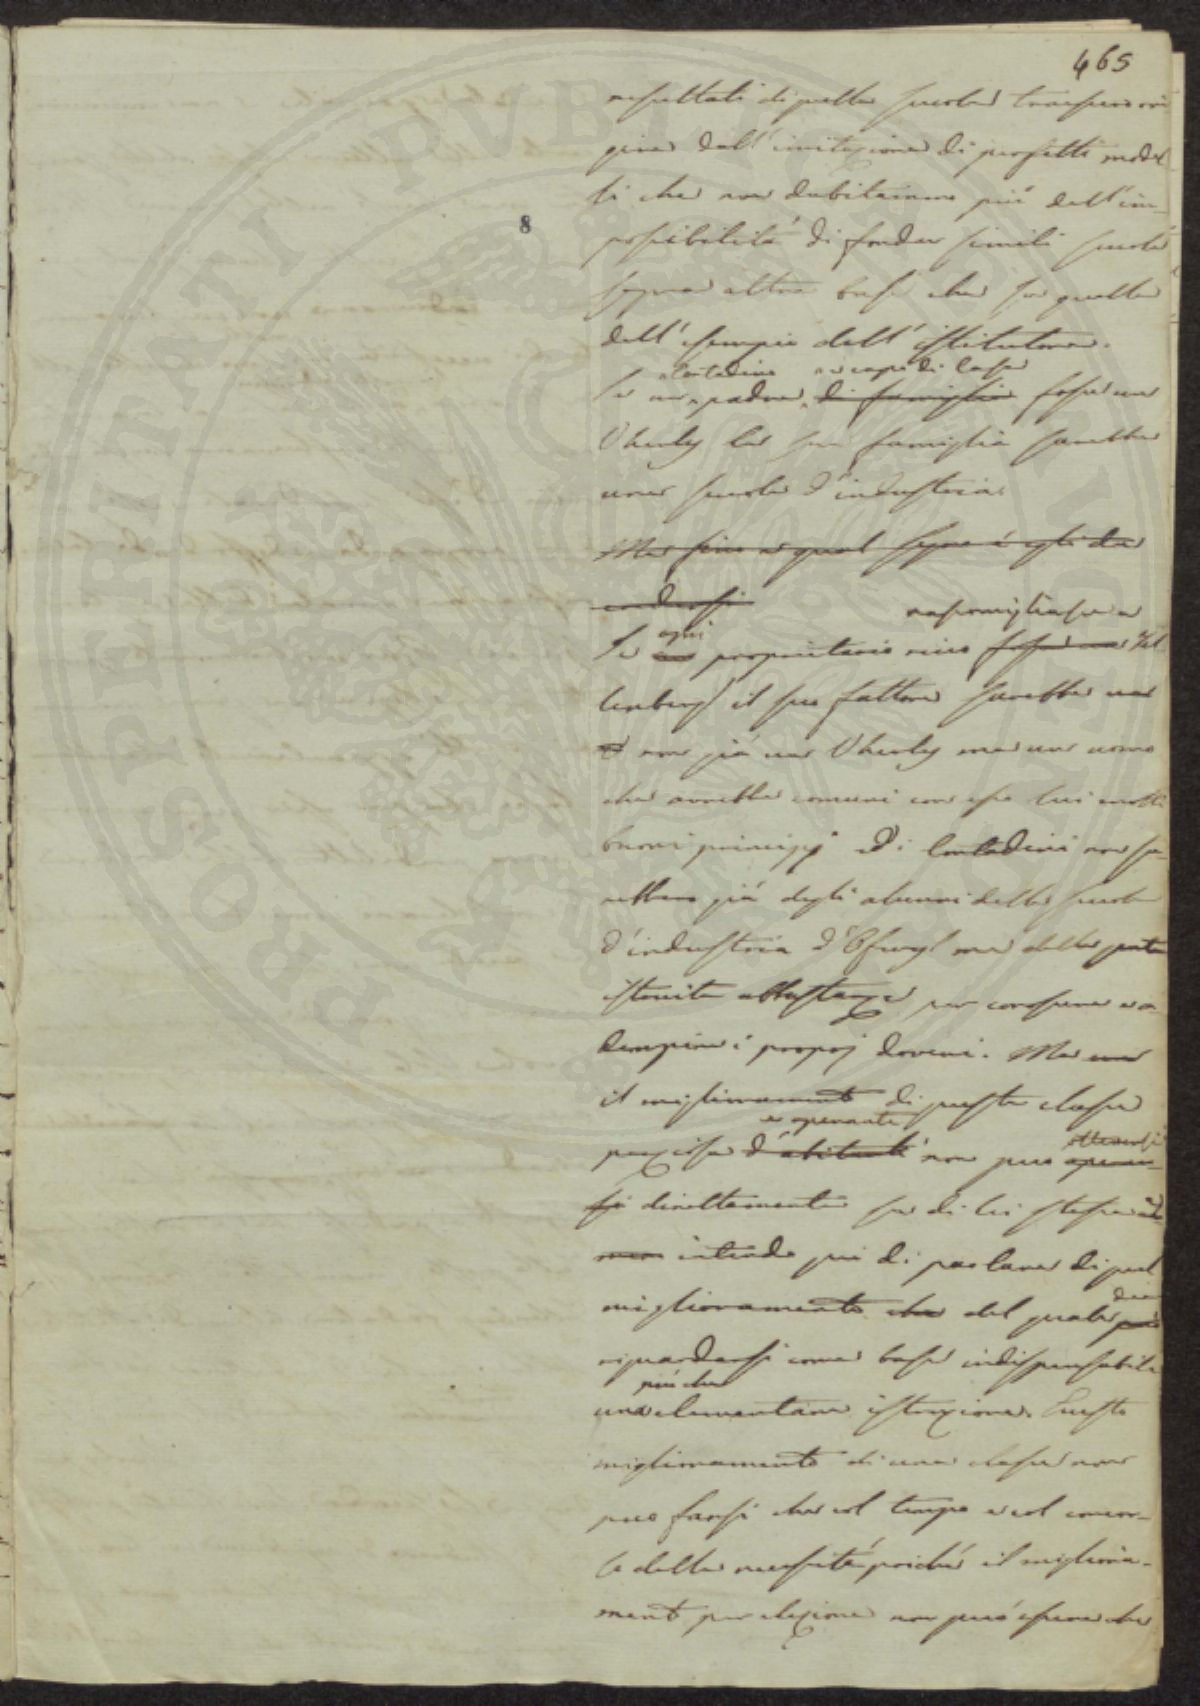 465
resultati di quella scuola trassero ori
gine dall'imitazione di perfetti model
li che non dubitiamo più dell'im-
possibilità di fondar simili scuole
sopra altra base che su quella
dell'esempio dell'istitutore.
contadino o capo di casa
Se un padre di famiglia fosse un
Vherly la sua famiglia sarebbe
una scuola d'industria.
Ma fino a qual segno è egli da
credersi
rassomigliasse a
ogni
Se un proprietario ricco fosse un Fel
lenberg il suo fattore sarebbe
non già un Vherly ma un uomo
che avrebbe comuni con esso lui molti
buoni principj ed i contadini non sa-
rebbero già degli alunni della scuola
d'industria d'Ofwyl ma della gente
istruita abbastanza per conoscere e a-
dempire i proprj doveri. Ma
il miglioramento di questa classe
e operante
preziosa d'abitanti non può
ottenersi
si direttamente su di lei stessa
non intendo qui di parlare di quel
miglioramento che del quale può
riguardarsi come base indispensabile
più che
una elementare istruzione. Questo
miglioramento di una classe non
può farsi che col tempo e col concor-
so della necessità poiché il migliora-
mento per elezione non può essere che
8
PROSPERITATI PVBLICAE